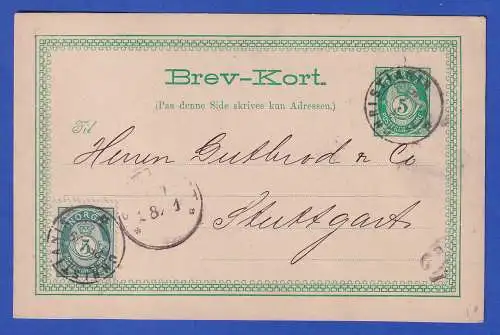 Brev-Kort.
(Paa denne Side skrives kun Adressen.)
5
Til
Herren Gutbrod & Co
Stuttgart
NORGE